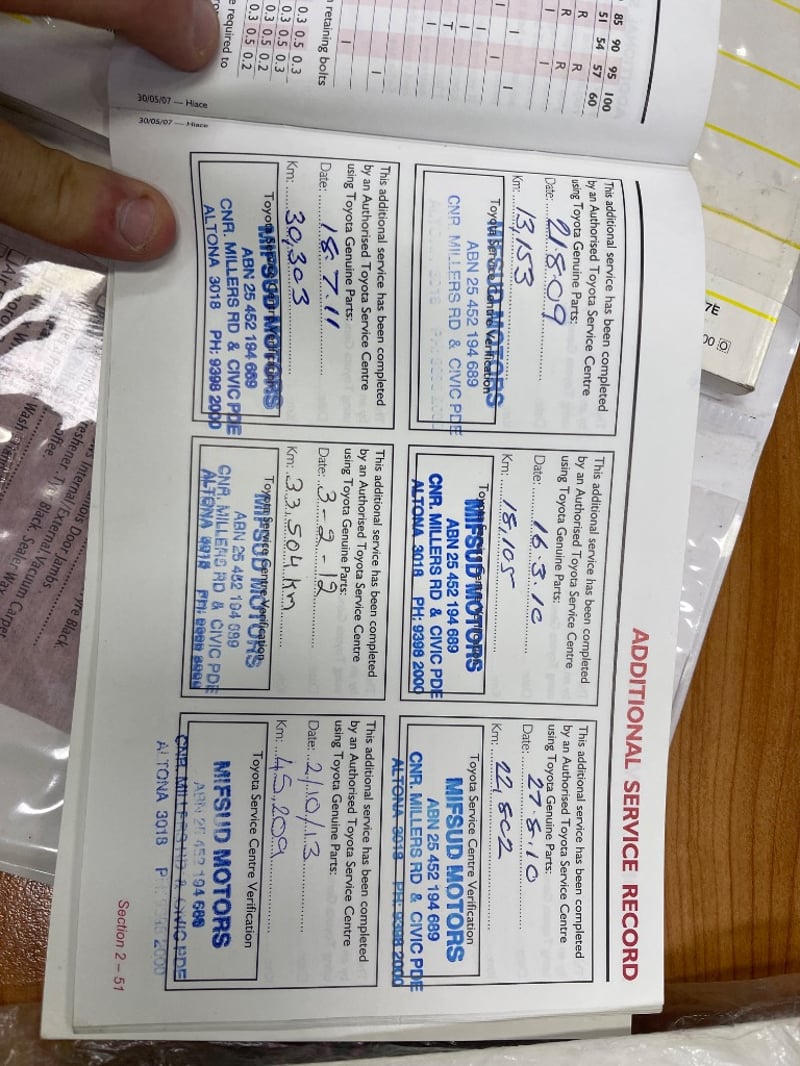 85 90 95 100
51 54 57 60
R R
R R
I I
I
I
T
I I
I I
I I
retaining bolts
0.3 0.5 0.3
0.3 0.5 0.3
0.3 0.5 0.2
0.3 0.5 0.2
e required to
30/05/07 — Hiace
30/05/07 — Hiace
ADDITIONAL SERVICE RECORD
This additional service has been completed
by an Authorised Toyota Service Centre
using Toyota Genuine Parts:
Date: 21.8.09
Km: 13,153
Toyota Service Centre Verification
MIFSUD MOTORS
ABN 25 452 194 689
CNR. MILLERS RD & CIVIC PDE
ALTONA 3018 PH: 9398 2000
This additional service has been completed
by an Authorised Toyota Service Centre
using Toyota Genuine Parts:
Date: 16.3.10
Km: 18,105
Toyota Service Centre Verification
MIFSUD MOTORS
ABN 25 452 194 689
CNR. MILLERS RD & CIVIC PDE
ALTONA 3018 PH: 9398 2000
This additional service has been completed
by an Authorised Toyota Service Centre
using Toyota Genuine Parts:
Date: 27.8.10
Km: 22,802
Toyota Service Centre Verification
MIFSUD MOTORS
ABN 25 452 194 689
CNR. MILLERS RD & CIVIC PDE
ALTONA 3018 PH: 9398 2000
This additional service has been completed
by an Authorised Toyota Service Centre
using Toyota Genuine Parts:
Date: 18.7.11
Km: 30,303
Toyota Service Centre Verification
MIFSUD MOTORS
ABN 25 452 194 689
CNR. MILLERS RD & CIVIC PDE
ALTONA 3018 PH: 9398 2000
This additional service has been completed
by an Authorised Toyota Service Centre
using Toyota Genuine Parts:
Date: 3-2-12
Km: 33,504 km
Toyota Service Centre Verification
MIFSUD MOTORS
ABN 25 452 194 689
CNR. MILLERS RD & CIVIC PDE
ALTONA 3018 PH: 9398 2000
This additional service has been completed
by an Authorised Toyota Service Centre
using Toyota Genuine Parts:
Date: 2/10/13
Km: 45,209
Toyota Service Centre Verification
MIFSUD MOTORS
ABN 25 452 194 689
CNR. MILLERS RD & CIVIC PDE
ALTONA 3018 PH: 9398 2000
Section 2 – 51
7E
00
Black
Door Jamb
Internal/External/Vacuum Carpet
Black Sealer Wax
Wash